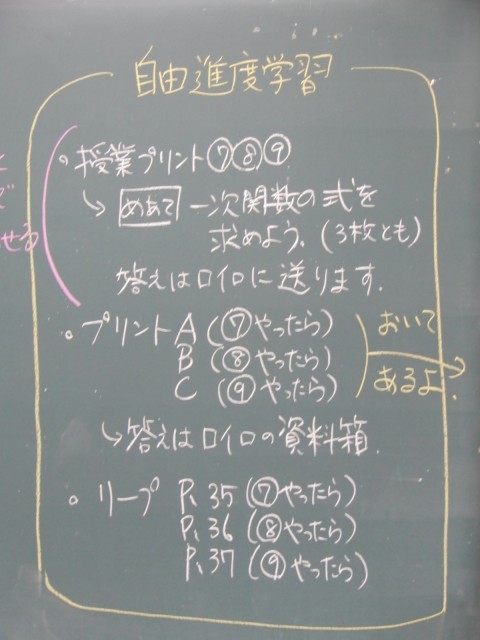 自由進度学習
・授業プリント⑦⑧⑨
↳ めあて 一次関数の式を
求めよう。(3枚とも)
答えはロイロに送ります。
・プリントA(⑦やったら)
B(⑧やったら)
C(⑨やったら)
おいて
あるよ。
↳答えはロイロの資料箱。
・リープ P.35(⑦やったら)
P.36(⑧やったら)
P.37(⑨やったら)
せる